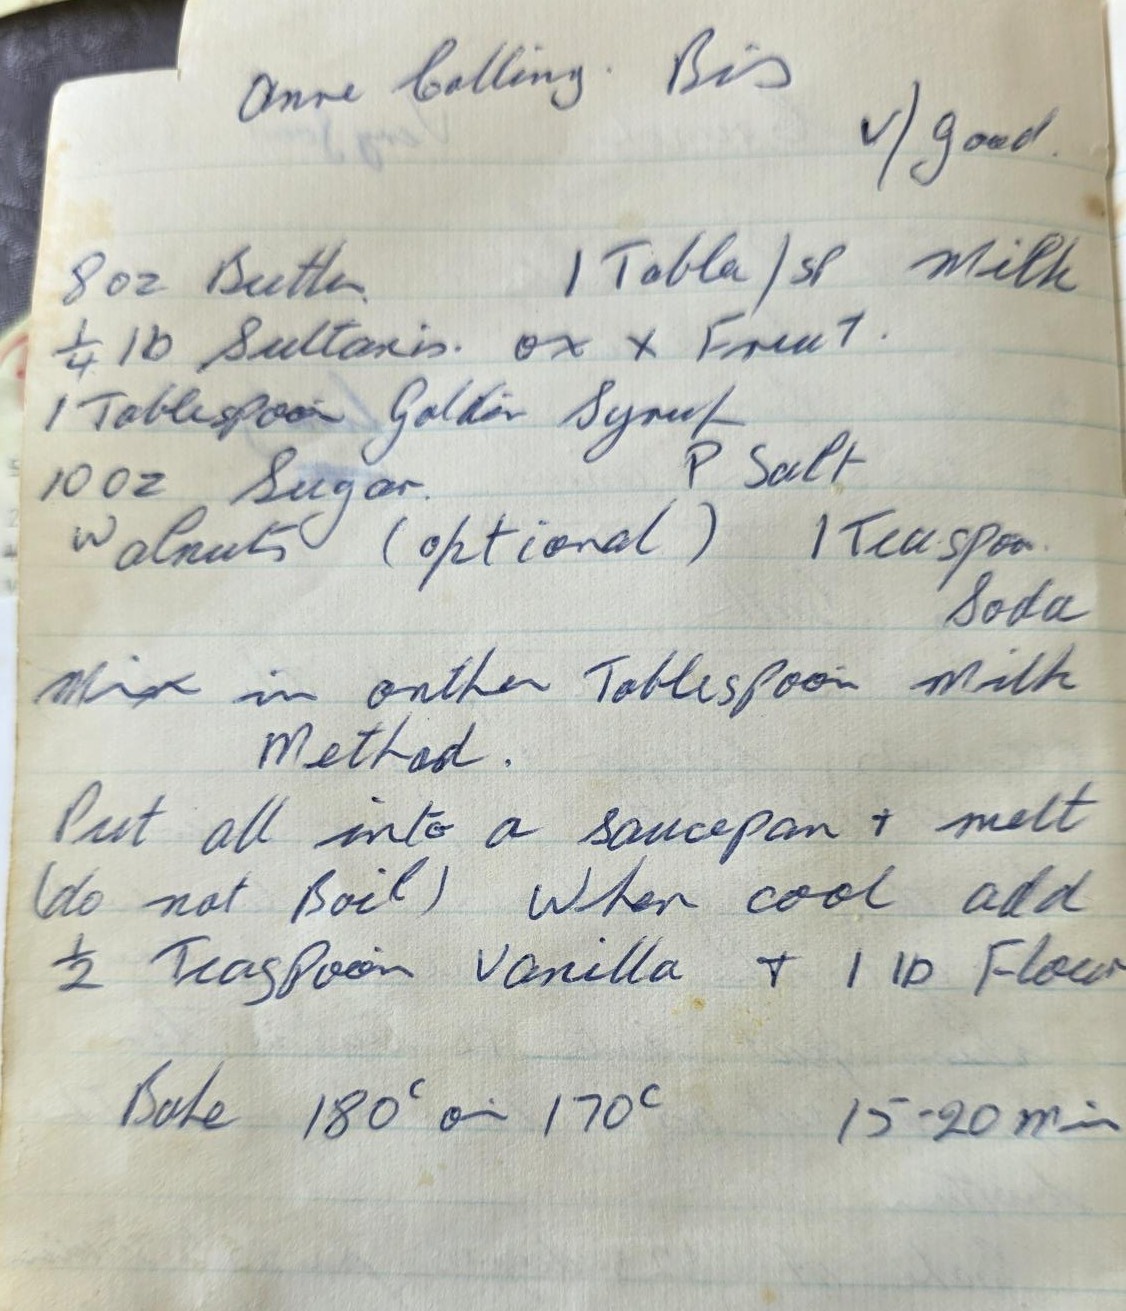 Anne Colling. Bis
v/good.
8oz Butter 1 Tabla/sp Milk
1/4 lb Sultanis. ox x Fruit.
1 Tablespoon Golden Syrup
10 oz Sugar. P Salt
Walnuts (optional) 1 Teaspoo.
Soda
Mix in another Tablespoon Milk
Method.
Put all into a saucepan + melt
(do not Boil) When cool add
1/2 Teaspoon Vanilla + 1 lb Flour
Bake 180c or 170c 15-20 min